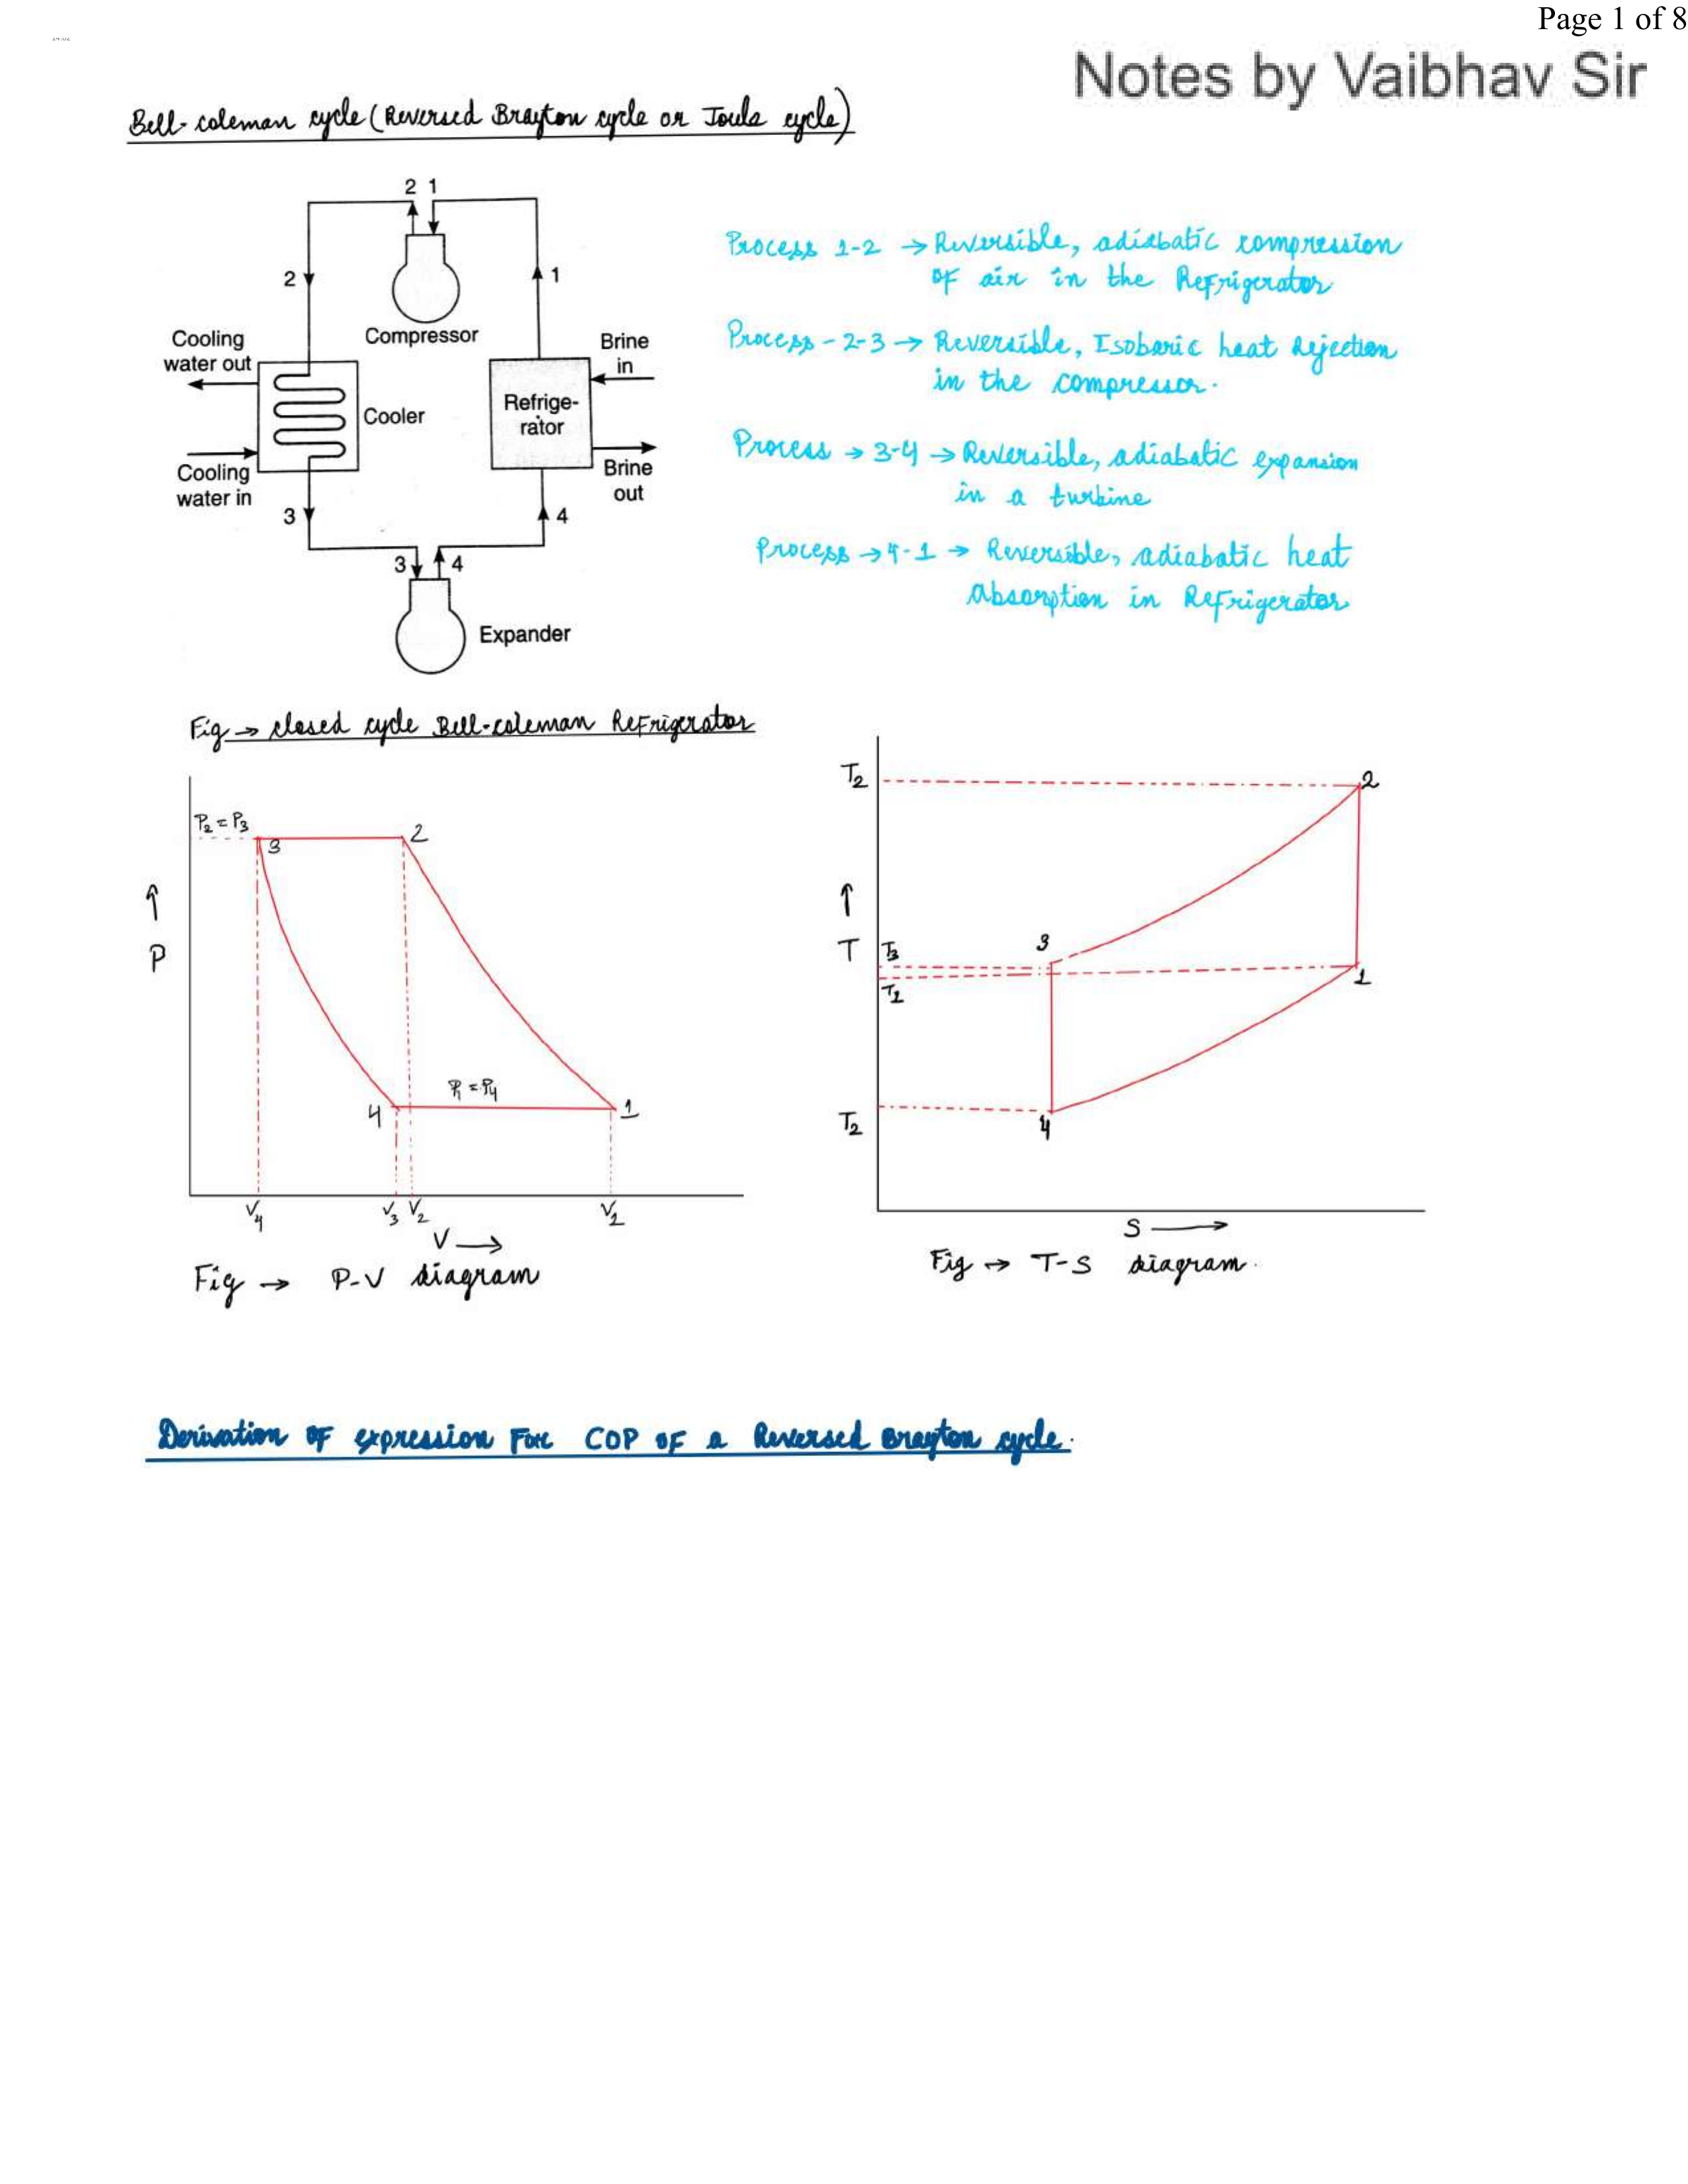 Page 1 of 8
Notes by Vaibhav Sir
Bell-coleman cycle (Reversed Brayton cycle or Joule cycle)
2 1
2
1
Compressor
Cooling
water out
Brine
in
Cooler
Refrige-
rator
Cooling
water in
Brine
out
3
4
3
4
Expander
Process 1-2 → Reversible, adiabatic compression
of air in the Refrigerator
Process - 2-3 → Reversible, Isobaric heat Rejection
in the compressor.
Process → 3-4 → Reversible, adiabatic expansion
in a turbine
Process → 4-1 → Reversible, adiabatic heat
Absorption in Refrigerator
Fig → closed cycle Bell-coleman Refrigerator
P₂ = P₃
3
2
↑
P
P₁ = P₄
4
1
V₄
V₃
V₂
V₁
V →
Fig → P-V diagram
T₂
2
↑
T
3
T₃
T₁
1
T₂
4
S →
Fig → T-S diagram.
Derivation of expression For COP of a Reversed Brayton cycle.